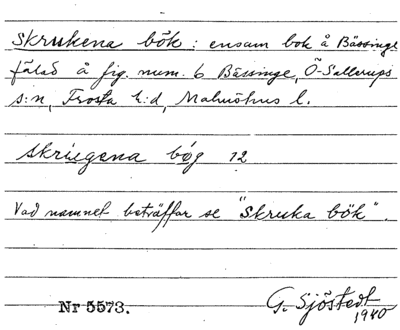 Skrukena bök: ensam bok å Bässinge
fälad å fig. num. 6 Bässinge, Ö-Sallerups
s:n, Frosta h:d, Malmöhus l.
skriegena bóg 12
Vad namnet beträffar se "Skruka bök".
G. Sjöstedt
1940
Nr 5573.